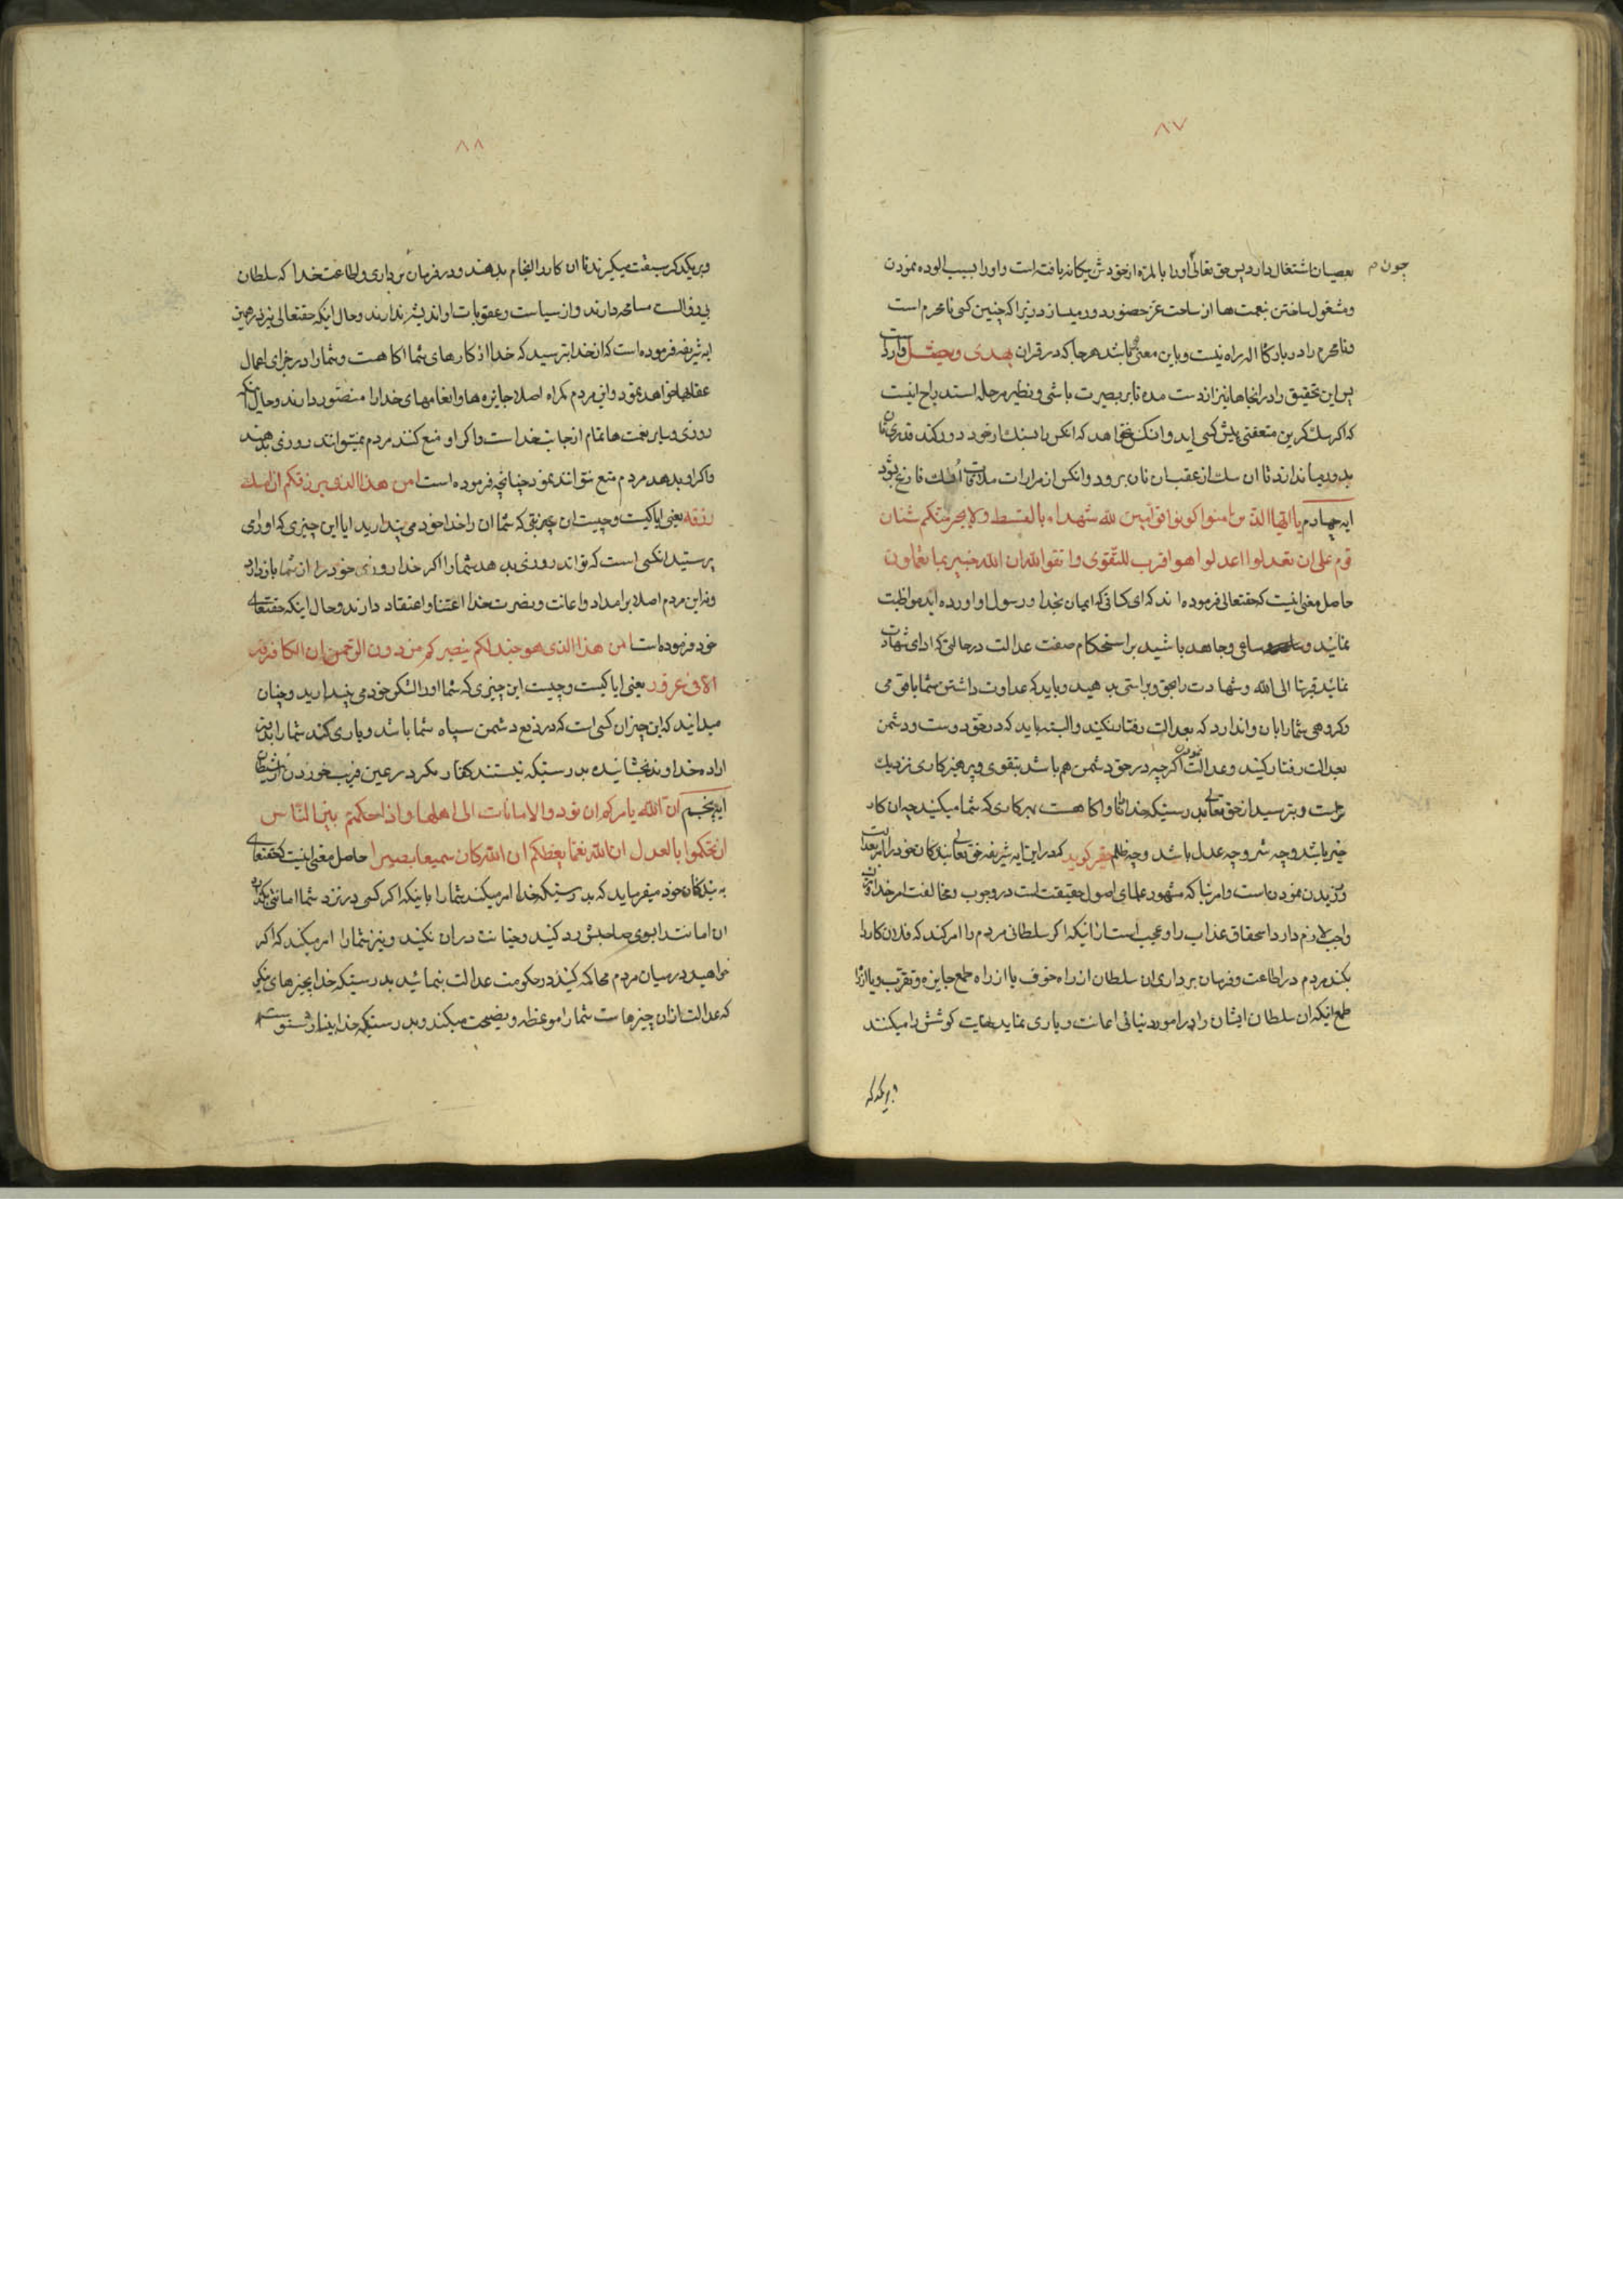 ۸۷
چون م
بعصیان اشتغال دارد پس حق تعالی اورا بالمره از خودش بیکانه یافته است و اورا بسبب الوده نمودن
و مشغول ساختن بنعمت ها از ساحت عز حضور دور میسازد زیرا که چنین کسی نامحرم است
و نامحرم را در بارکاه اله راه نیست و باین معنی باشد هر جا که در قران یهدی و یضل وارد است
پس این تحقیق را در اینجاها نیز از دست مده تا با بصیرت باشی و نظیر مرحله استدراج اینست
که اکر سک کرین متعفنی پیش کسی اید و انکس نخواهد که انکس را بسنک از خود دور کند قدری نان
بدور میاندازد تا ان سک از عقب ان نان برود و انکس از مرارات ملاقات ان سک فارغ شود
ایه چهارم یا ایها الذین امنوا کونوا قوامین لله شهداء بالقسط و لا یجرمنکم شنان
قوم علی ان تعدلوا اعدلوا هو اقرب للتقوی و اتقوا الله ان الله خبیر بما تعملون
حاصل معنی اینست که حقتعالی فرموده اند که ای کسانی که ایمان بخدا و رسول او اورده اید مواظبت
نمائید و ساعی و جاهد باشید بر استحکام صفت عدالت در حالتی که ادای شهادت
نمائید قربتا الی الله و شهادت را بحق و براستی بدهید و باید که عداوت داشتن شما با قومی
و کروهی شما را بان واندارد که بعدالت رفتار نکنید و البته باید که در حق دوست و دشمن
بعدالت رفتار کنید و عدالت نمودن اکر چه در حق دشمن هم باشد بتقوی و پرهیزکاری نزدیک
تر است و بترسید از حق تعالی بدرستیکه خدا دانا و اکاه هست بهر کاری که شما میکنید چه ان کار
خیر باشد و چه شر و چه عدل باشد و چه ظلم حقیر کوید که در این ایه شریفه حق تعالی بندکان خود را امر بعدالت
ورزیدن نموده است و امر بنا که مشهور علمای اصول حقیقت است در وجوب و مخالفت امر خدا
واجب لازم دارد استحقاق عذاب را و عجب است از اینکه اکر سلطانی مردم را امر کند که فلان کار را
بکند مردم در اطاعت و فرمان برداری ان سلطان از راه خوف یا از راه طمع جایزه و تقرب و یا از راه
طمع اینکه ان سلطان ایشان را در امور دنیائی اعانت و یاری نماید نهایت کوشش را میکنند
بر یکدکر
۸۸
و بر یکدکر سبقت میکیرند تا ان کار را انجام بدهند و در فرمان برداری و اطاعت خدا که سلطان
بی زوال است مسامحه دارند و از سیاست و عقوبات او اندیشه ندارند و حال اینکه حقتعالی نیز در همین
ایه شریفه فرموده است که از خدا بترسید که خدا از کارهای شما اکاه هست و شما را در جزای اعمال
عقابها خواهد نمود و این مردم کمراه اصلا جایزه ها و انعامهای خدا را منظور ندارند و حال اینکه
روزی و سایر نعمت ها تمام از جانب خداست و اکر او منع کند مردم نمیتوانند روزی بدهند
و اکر او بدهد مردم منع نتوانند نمود چنانچه فرموده است امن هذا الذی یرزقکم ان امسک
رزقه یعنی ایا کیست و چیست ان چیزیکه شما ان را خدا خود می پندارید ایا این چیزی که او را می
پرستید انکسی است که تواند روزی بدهد شما را اکر خدا روزی خود را از شما بازدارد
و نه این مردم اصلا بر امداد و اعانت و نصرت خدا اعتنا و اعتقاد دارند و حال اینکه حقتعالی
خود فرموده است امن هذا الذی هو جند لکم ینصرکم من دون الرحمن ان الکافرون
الا فی غرور یعنی ایا کیست و چیست این چیزی که شما او را لشکر خود می پندارید و چنان
میدانید که این چیز ان کسی است که در دفع دشمن سپاه شما باشد و یاری کند شما را بدون
اراده خداوند بخشاینده بدرستیکه نیستند کفار مکر در عین فریب خوردن از شیطان
ایه پنجم ان الله یامرکم ان تودوا الامانات الی اهلها و اذا حکمتم بین الناس
ان تحکموا بالعدل ان الله نعما یعظکم ان الله کان سمیعا بصیرا حاصل معنی اینست که حقتعالی
به بندکان خود میفرماید که بدرستیکه خدا امر میکند شما را باینکه اکر کسی در نزد شما امانتی بکذارد
ان امانت را بسوی صاحبش رد کنید و خیانت در ان نکنید و نیز شما را امر میکند که اکر
خواهید در میان مردم محاکمه کنید در حکومت عدالت بنمائید بدرستیکه خدا بچیزهای نیکی
که عدالت از ان چیزهاست شما را موعظه و نصیحت میکند و بدرستیکه خدا بینا و شنوا است